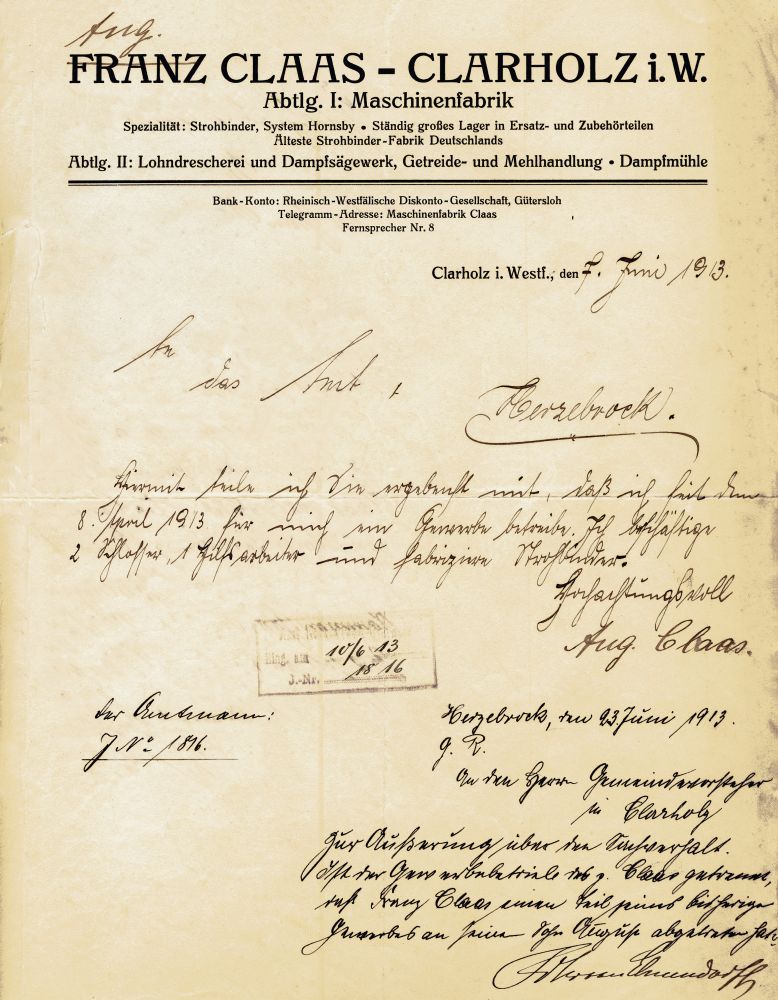 Aug.
FRANZ CLAAS - CLARHOLZ i.W.
Abtlg. I: Maschinenfabrik
Spezialität: Strohbinder, System Hornsby • Ständig großes Lager in Ersatz- und Zubehörteilen
Älteste Strohbinder-Fabrik Deutschlands
Abtlg. II: Lohndrescherei und Dampfsägewerk, Getreide- und Mehlhandlung • Dampfmühle
Bank-Konto: Rheinisch-Westfälische Diskonto-Gesellschaft, Gütersloh
Telegramm-Adresse: Maschinenfabrik Claas
Fernsprecher Nr. 8
Clarholz i. Westf., den 7. Juni 1913.
An
das Amt,
Herzebrock.
Hiermit teile ich Sie ergebenst mit, daß ich seit dem
8. April 1913 für mich ein Gewerbe betreibe. Ich beschäftige
2 Schlosser, 1 Hilfsarbeiter und fabriziere Strohbinder.
Hochachtungsvoll
Aug. Claas.
Eing. am 10/6 13
J.-Nr. 18 16
Der Amtmann:
J No 1816.
Herzebrock, den 23. Juni 1913.
g. R.
An den Herrn Gemeindevorsteher
in Clarholz
zur Äußerung über den Sachverhalt.
Ist der Gewerbebetrieb des p. Claas getrennt,
daß Franz Claas einen Teil seines bisherigen
Gewerbes an seinen Sohn August abgetreten hat.